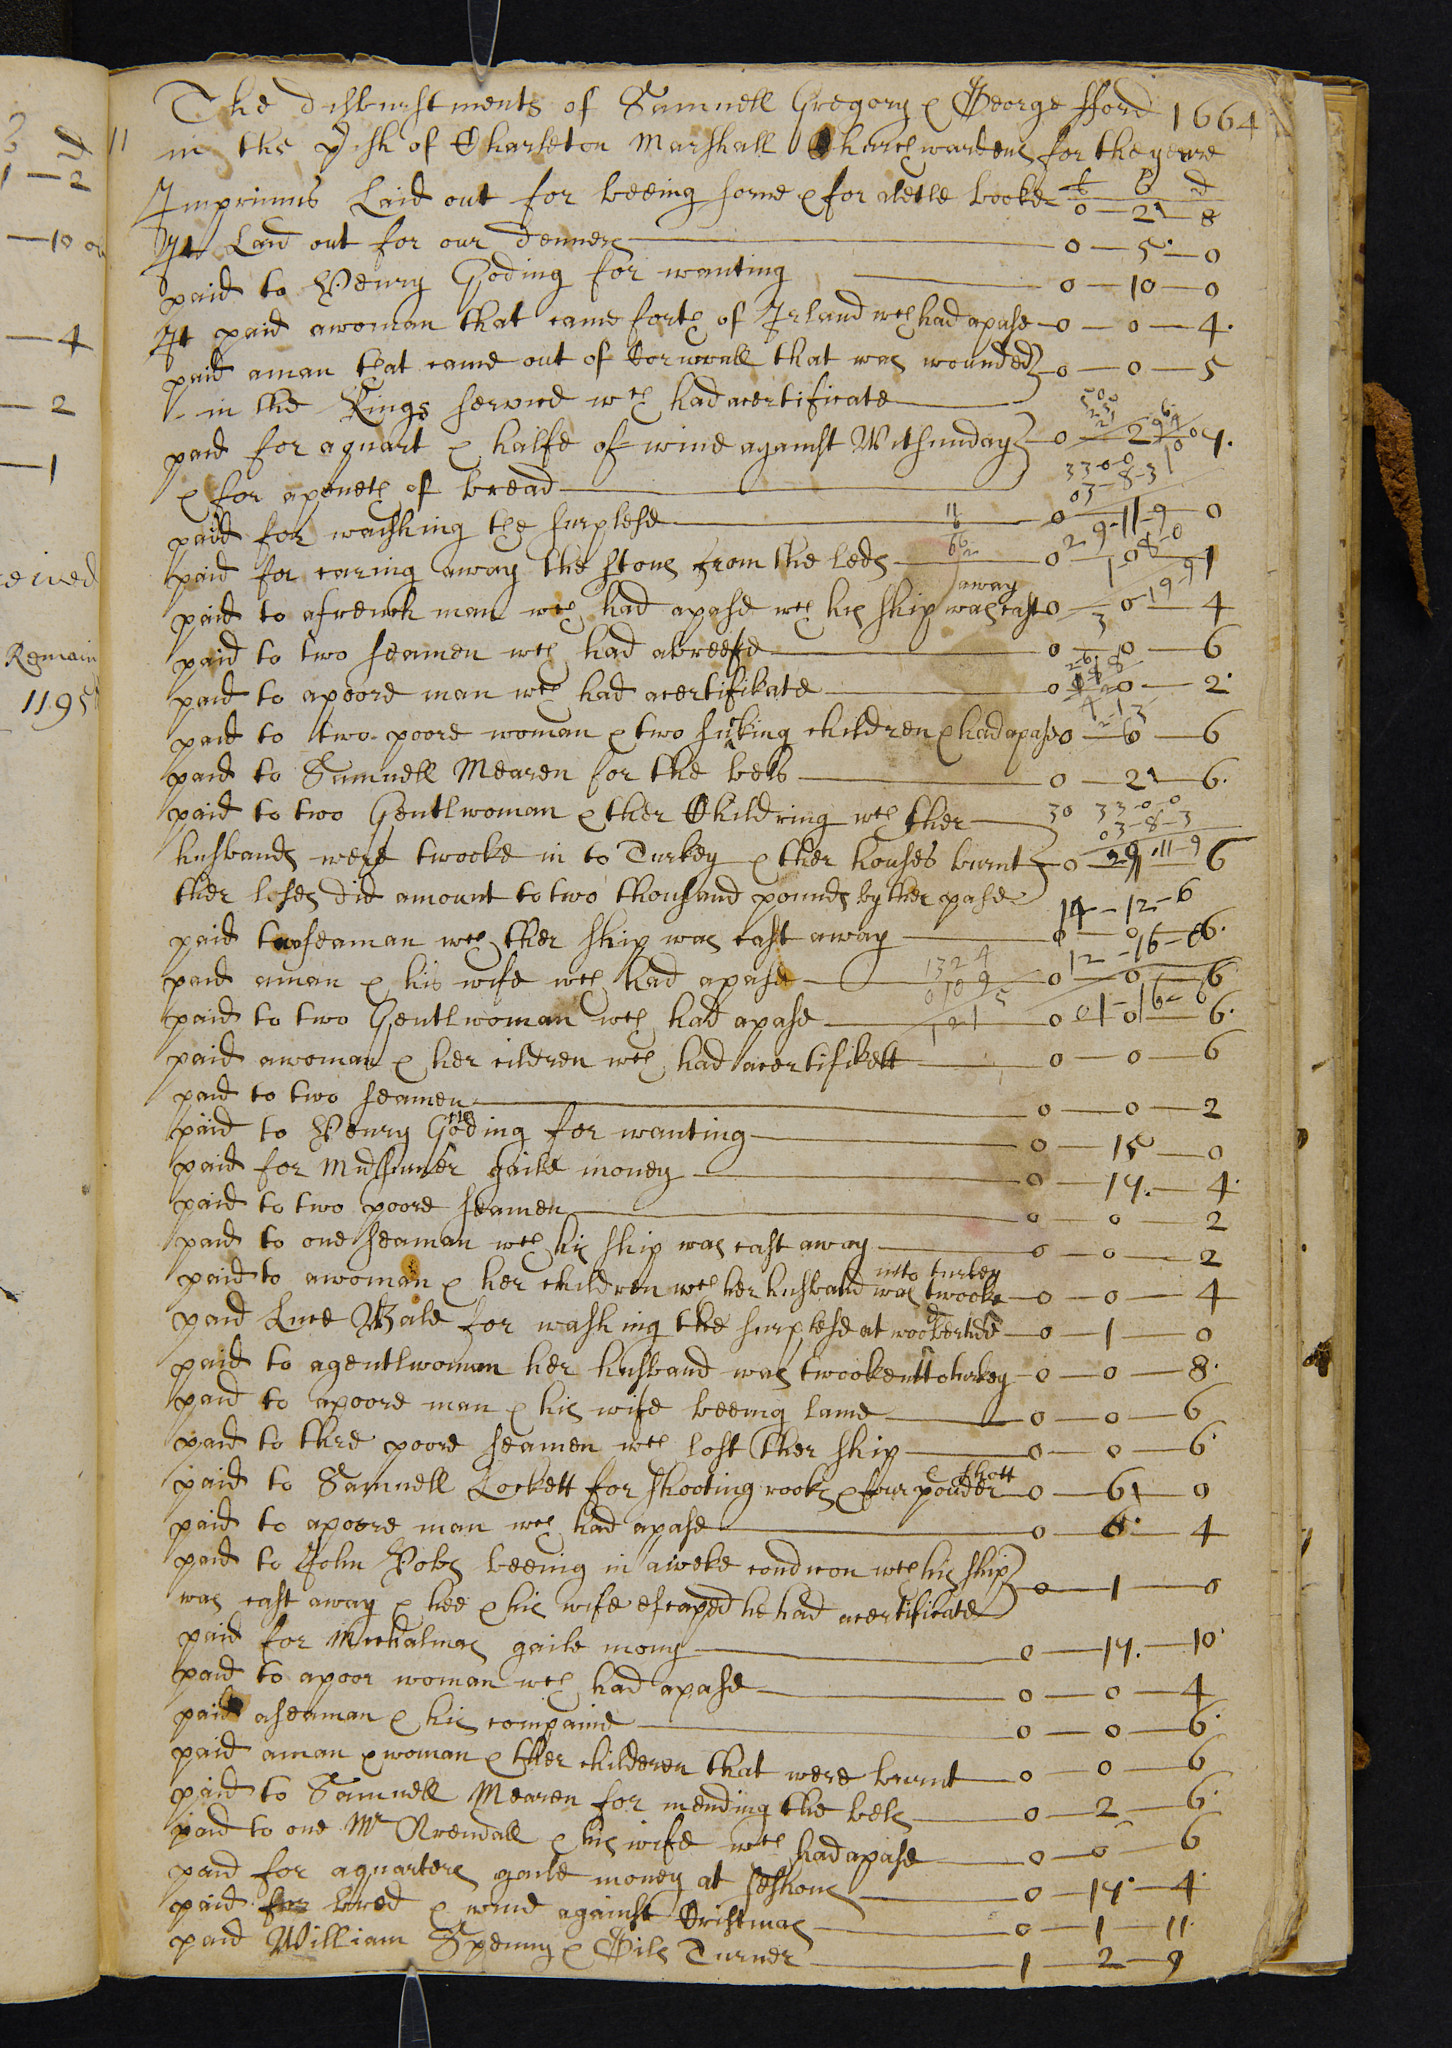 The disburstments of Samuell Gregory & George fford 1664
in the pish of Charleton Marshall Churchwardens for the yeare
£ s d
Imprimis Laid out for beeing sorne & for a letle booke 0 — 2 — 8
It Laid out for our denners 0 — 5 — 0
paid to Henry Goding for wanting 0 — 10 — 0
It paid a woman that came forth of Irland wch had a pase 0 — 0 — 4
paid a man that came out of Cornwall that was wounded
in the Kings servied wch had a certificate 0 — 0 — 5
paid for a quart & halfe of wine against Witsunday
& for a peneth of bread 0 — 2 — 7
paid for washing the surplese 0 — — 0
paid for caring away the stons from the leds 0 — 1 — 1
paid to a french man wch had a pase wch his ship was cast away 0 — 0 — 4
paid to two seamen wch had a breefe 0 — 0 — 6
paid to a poore man wch had a certifikate 0 — 0 — 2
paid to two poore woman & two sucking children & had a pase 0 — 0 — 6
paid to Samuell Mearen for the bels 0 — 2 — 6
paid to two Gentlwoman & ther Childring wch ther
husbands were twooke in to Turkey & ther houses burnt
ther loses did amount to two thousand pounds by ther pase 0 — — 6
30 33-0-0
03-8-3
29-11-9
14-12-6
paid two seaman wch ther ship was cast away 0 — 0 — 6
12-16-0
paid a man & his wife wch had a pase 0 — 0 — 6
01-16-6
paid to two Gentlwoman wch had a pase 0 — 0 — 6
paid a woman & her cildren wch had a certifikett 0 — 0 — 6
paid to two seamen 0 — 0 — 2
paid to Henry Goding for wanting 0 — 15 — 0
paid for Midsumer gaile money 0 — 17 — 4
paid to two poore seamen 0 — 0 — 2
paid to one seaman wch his ship was cast away 0 — 0 — 2
paid to a woman & her children wch her husband was twooke into turkey 0 — 0 — 4
paid Luce Bale for washing the surplese at 0 — 1 — 0
paid to a gentlwoman her husband was twooke to turkey 0 — 0 — 8
paid to a poore man & his wife beeing lame 0 — 0 — 6
paid to thre poore seamen wch lost ther ship 0 — 0 — 6
paid to Samuell Lockett for shooting rooks & four pouder & shott 0 — 6 — 0
paid to a poore man wch had a pase 0 — 0 — 4
paid to John beeing in a weke condicon wch his ship
was cast away & hee & his wife escaped he had a certificate 0 — 1 — 0
paid for Micchalmas gaile mony 0 — 17 — 10
paid to a poor woman wch had a pase 0 — 0 — 4
paid a seaman & his compaine 0 — 0 — 6
paid a man & woman & ther childeren that were burnt 0 — 0 — 6
paid to Samuell Mearen for mending the bels 0 — 2 — 6
paid to one Mr Arendall & his wife wch had a pase 0 — 0 — 6
paid for a quarters gaile money at seshons 0 — 17 — 4
paid for bred & wine against Cristmas 0 — 1 — 11
paid William Speninge & Gils Turner 1 — 2 — 9
eived
Remain
1195